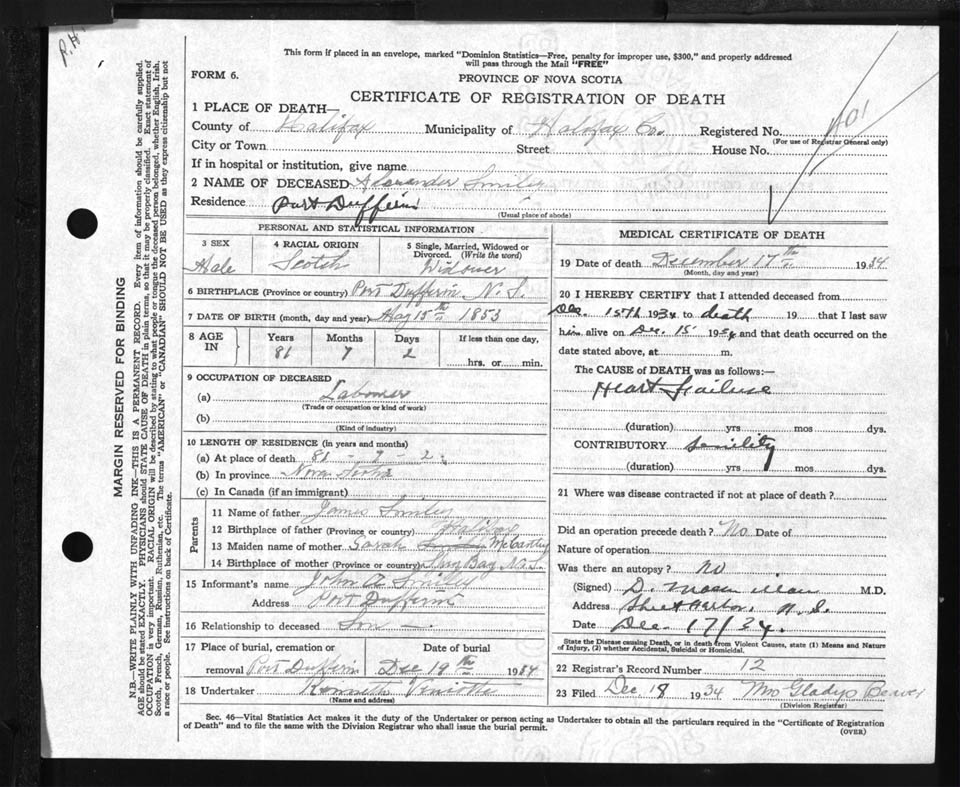 This form if placed in an envelope, marked "Dominion Statistics—Free, penalty for improper use, $300," and properly addressed
will pass through the Mail "FREE"
FORM 6.
PROVINCE OF NOVA SCOTIA
CERTIFICATE OF REGISTRATION OF DEATH
1 PLACE OF DEATH—
County of Halifax Municipality of Halifax Co. Registered No.
(For use of Registrar General only)
City or Town Street House No.
If in hospital or institution, give name
2 NAME OF DECEASED Alexander Smiley
Residence Port Dufferin
(Usual place of abode)
PERSONAL AND STATISTICAL INFORMATION
3 SEX 4 RACIAL ORIGIN 5 Single, Married, Widowed or Divorced. (Write the word)
Male Scotch Widower
6 BIRTHPLACE (Province or country) Port Dufferin N.S.
7 DATE OF BIRTH (month, day and year) May 15th 1853
8 AGE IN Years Months Days If less than one day,
81 7 2 hrs. or min.
9 OCCUPATION OF DECEASED
(a) Labourer
(Trade or occupation or kind of work)
(b)
(Kind of industry)
10 LENGTH OF RESIDENCE (in years and months)
(a) At place of death 81 - 7 - 2
(b) In province Nova Scotia
(c) In Canada (if an immigrant)
Parents
11 Name of father James Smiley
12 Birthplace of father (Province or country) Halifax
13 Maiden name of mother Sarah McCarthy
14 Birthplace of mother (Province or country) Bay N.S.
15 Informant's name John A Smiley
Address Port Dufferin
16 Relationship to deceased Son
17 Place of burial, cremation or Date of burial
removal Port Dufferin Dec 19th 1934
18 Undertaker Kenneth
(Name and address)
MEDICAL CERTIFICATE OF DEATH
19 Date of death December 17th 1934
(Month, day and year)
20 I HEREBY CERTIFY that I attended deceased from
Dec. 15th 1934 to death 19 that I last saw
him alive on Dec. 15 1934 and that death occurred on the
date stated above, at m.
The CAUSE of DEATH was as follows:—
Heart Failure
(duration) yrs mos dys.
CONTRIBUTORY Senility
(duration) yrs mos dys.
21 Where was disease contracted if not at place of death?
Did an operation precede death? No Date of
Nature of operation
Was there an autopsy? No
(Signed) D. M.D.
Address Sheet Harbor, N.S.
Date Dec. 17/34.
State the Disease causing Death, or in death from Violent Causes, state (1) Means and Nature
of Injury, (2) whether Accidental, Suicidal or Homicidal.
22 Registrar's Record Number 12
23 Filed Dec 18 1934 Mrs Gladys
(Division Registrar)
Sec. 46—Vital Statistics Act makes it the duty of the Undertaker or person acting as Undertaker to obtain all the particulars required in the "Certificate of Registration
of Death" and to file the same with the Division Registrar who shall issue the burial permit.
(OVER)
MARGIN RESERVED FOR BINDING
N.B.—WRITE PLAINLY WITH UNFADING INK—THIS IS A PERMANENT RECORD. Every item of information should be carefully supplied.
AGE should be stated EXACTLY. PHYSICIANS should STATE CAUSE OF DEATH in plain terms, so that it may be properly classified. Exact statement of
OCCUPATION is very important. RACIAL ORIGIN will be described by stating to what people or tongue the deceased person belonged, whether English, Irish,
Scotch, French, German, Russian, Ruthenian, etc. The terms "AMERICAN" or "CANADIAN" SHOULD NOT BE USED as they express citizenship but not
a race or people. See instructions on back of Certificate.